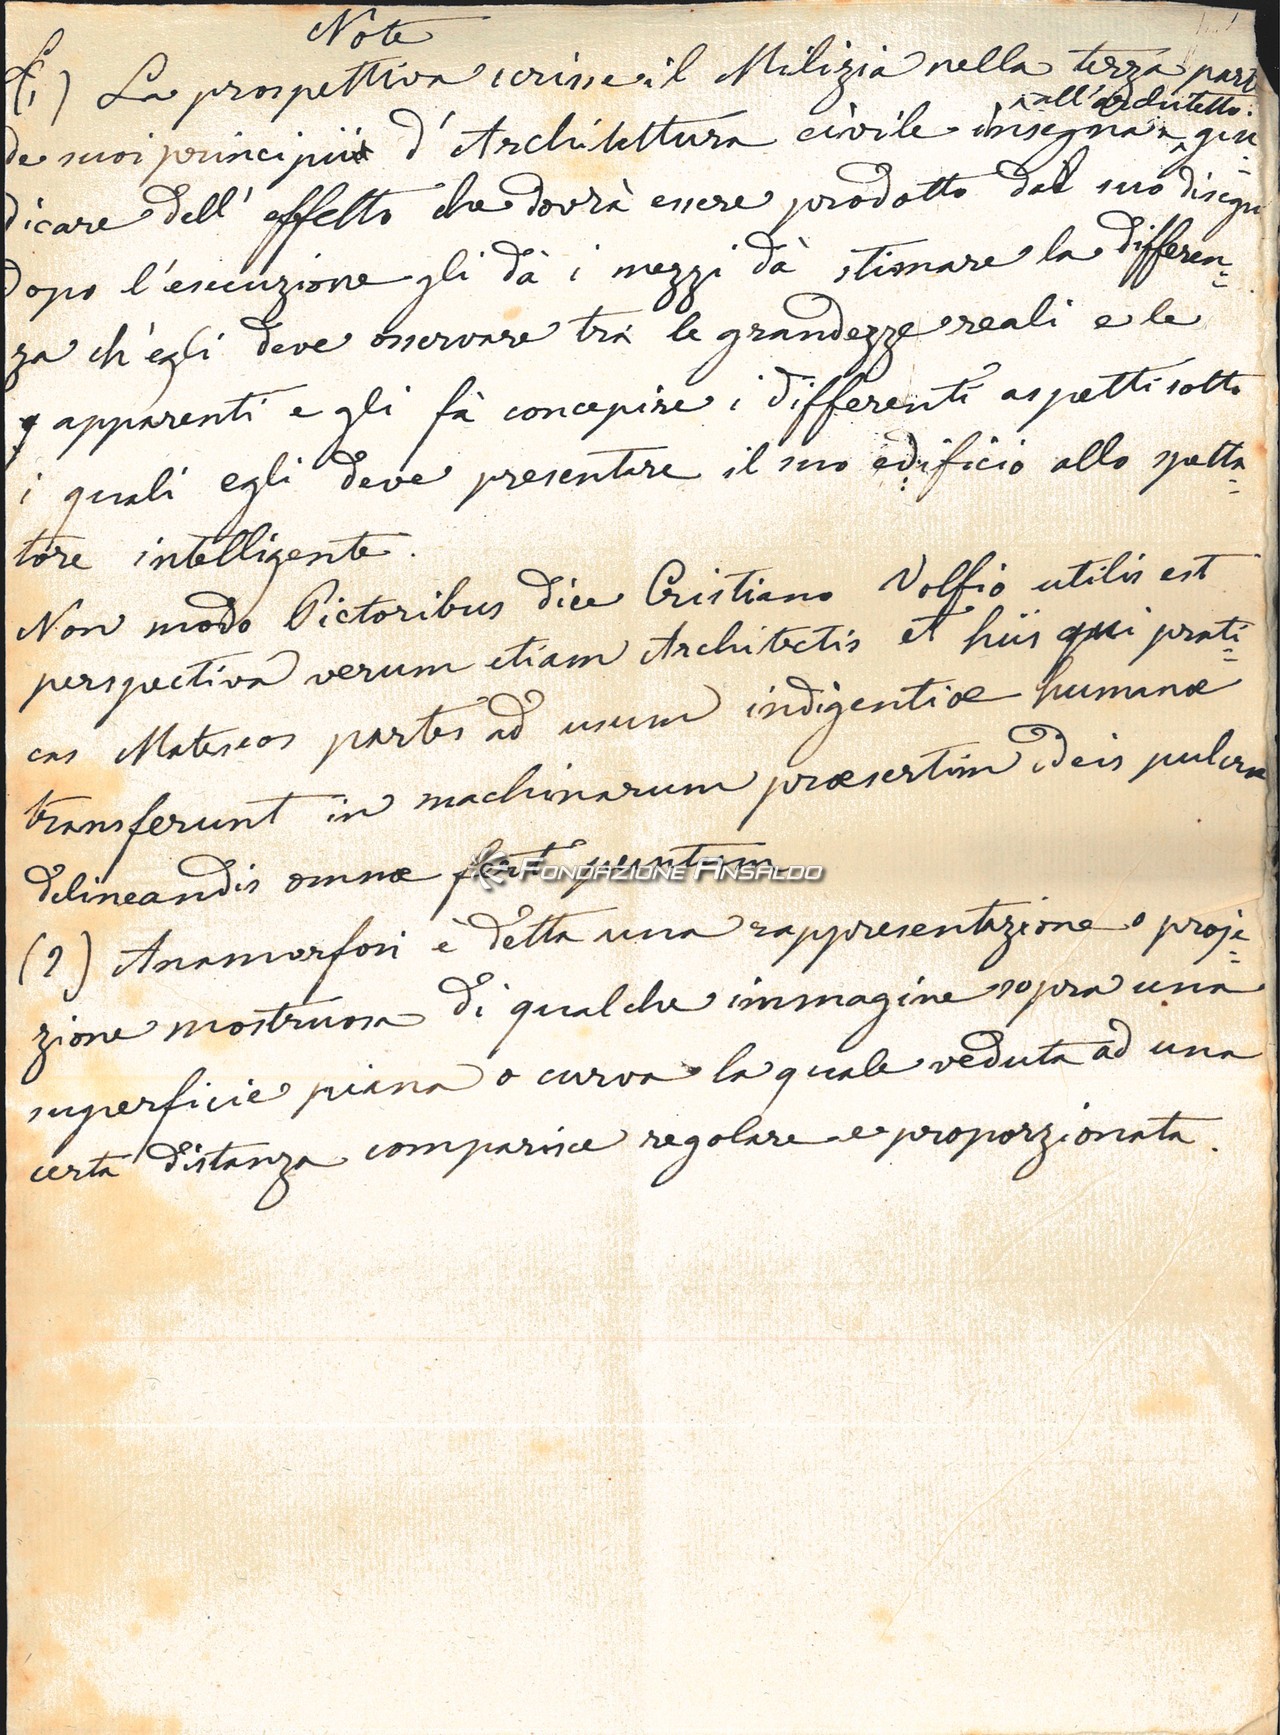 Note
(1) La prospettiva scrisse il Milizia nella terza part
all'architetto
de suoi principii d'Architettura civile insegna a giu=
dicare dell'effetto che dovrà essere prodotto dal suo disegn
dopo l'esecuzione gli dà i mezzi dà stimare la differen=
za ch'egli deve osservare tra le grandezze reali e le
apparenti e gli fà concepire i differenti aspetti sotto
i quali egli deve presentare il suo edificio allo spetta=
tore intelligente.
Non modo Pictoribus dice Cristiano Volfio utilis est
perspectiva verum etiam Architectis et hiis qui prati=
cas Mateseos partes ad usum indigentiæ humanæ
transferunt in machinarum præsertim ideis pulcræ
delineandis omnæ fert punctum
FONDAZIONE ANSALDO
(2) Anamorfosi è detta una rappresentazione o proje=
zione mostruosa di qualche immagine sopra una
superficie piana o curva la quale veduta ad una
certa distanza comparisce regolare e proporzionata.